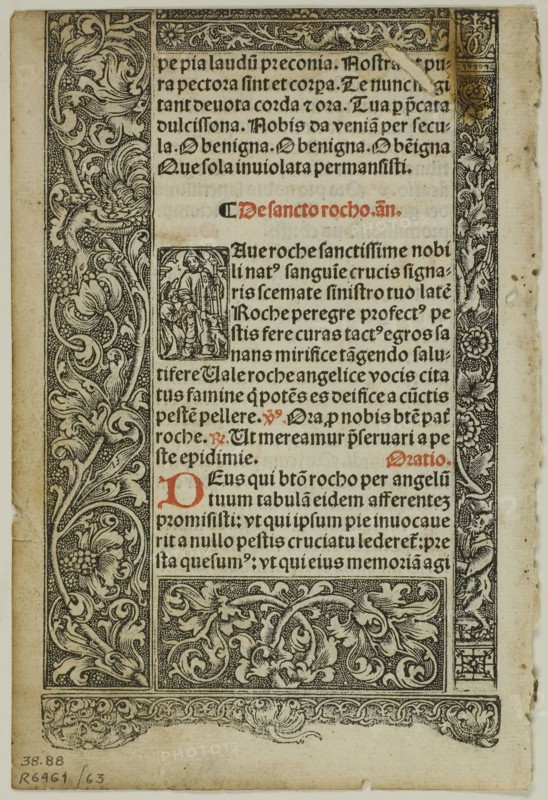 pe pia laudū preconia. Nostra et pu-
ra pectora sint et corpa. Te nunc flagi
tant deuota corda ⁊ ora. Tua ꝑ p̄cata
dulcissona. Nobis da veniā per secu-
la. O benigna. O benigna. O bēigna
Que sola inuiolata permansisti.
¶ De sancto rocho. an̄.
Aue roche sanctissime nobi
li natꝰ sanguīe crucis signa-
ris scemate sinistro tuo latē
Roche peregre profectꝰ pe
stis fere curas tactꝰ egros sa
nans mirifice tāgendo salu-
tifere Uale roche angelice vocis cita
tus famine q̄ potēs es deifice a cūctis
pestē pellere. ℣ꝰ. Ora ꝓ nobis btē pat̄
roche. ℟. Ut mereamur p̄seruari a pe
ste epidimie. Oratio.
DEus qui btō rocho per angelū
tuum tabulā eidem afferentez
promisisti: vt qui ipsum pie inuocaue
rit a nullo pestis cruciatu lederet̄: pre
sta quesumꝰ: vt qui eius memoriā agi
38.88
R6461/63